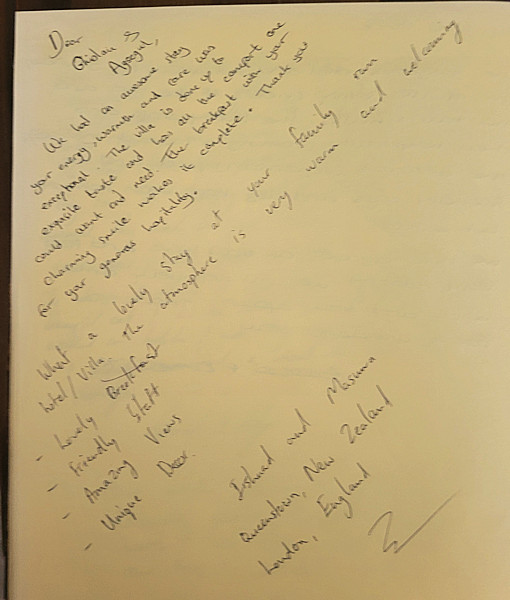 Dear
Ghislou &
Aysegul,
We had an awesome stay
your energy, warmth and care was
exceptional. The villa is done up to
exquisite taste and has all the comfort one
could want and need. The breakfast with your
charming smile makes it complete. Thank you
for your generous hospitality.
What a lovely stay at your family run
hotel/villa. The atmosphere is very warm and welcoming
- Lovely Breakfast
- Friendly Staff
- Amazing Views
- Unique Decor.
Irshaad and Masuma
Queenstown, New Zealand
London, England